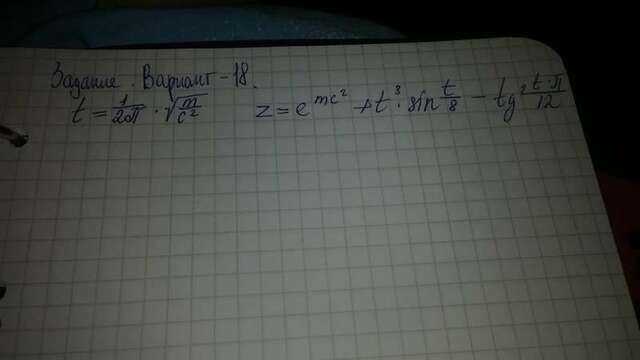 Задание. Вариант - 18.
t = 1/2π · √(m/c²) z = e^(mc²) + t³ · sin t/8 - tg² t·π/12